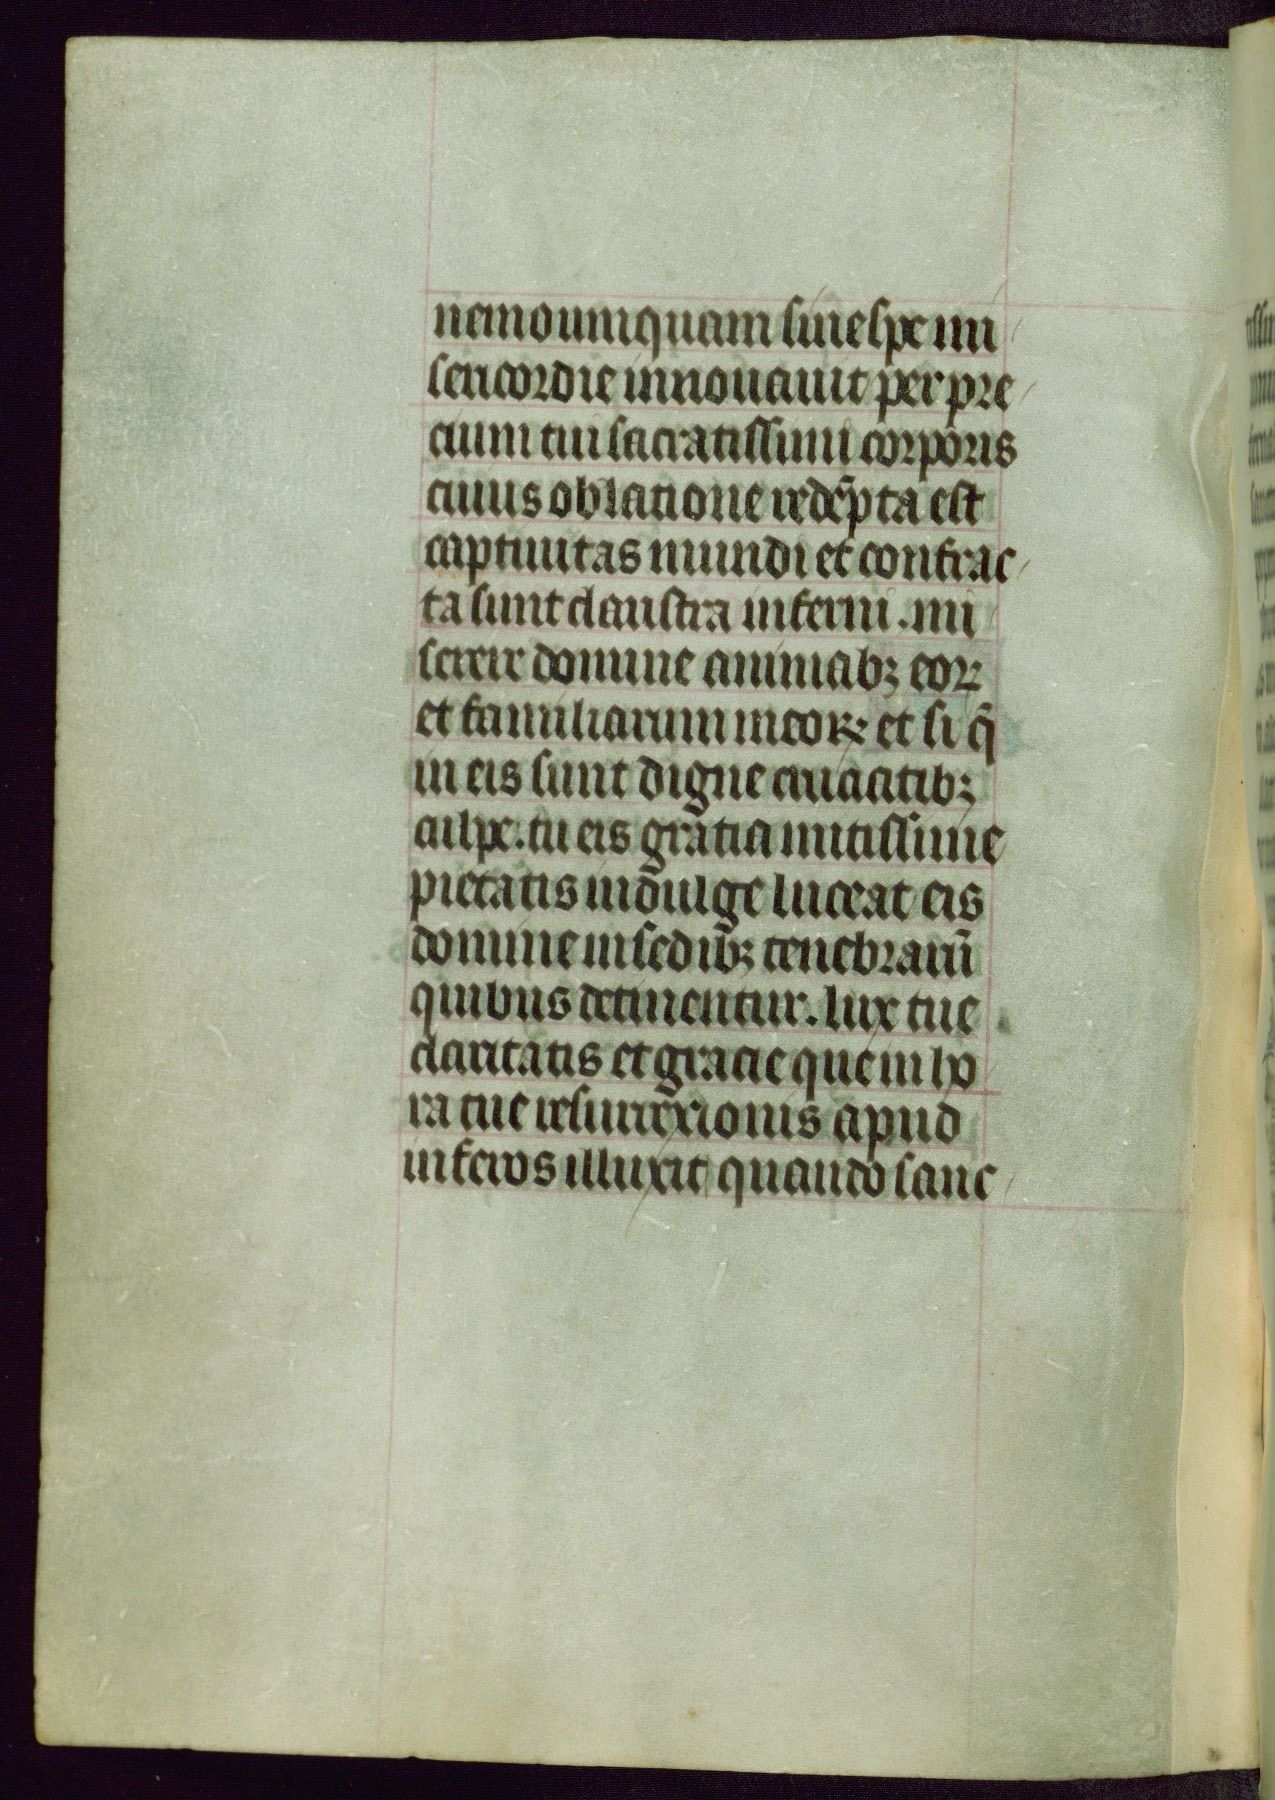 nemo umquam sine spe mi
sericordie innouauit per pre
cium tui sacratissimi corporis
cuius oblatione redēpta est
captiuitas mundi et confrac
ta sunt claustra inferni. mi
serere domine animabꝫ eoꝝ
et familiarum meoꝝ et si q̄
in eis sunt digne cruciatibꝫ
culpe. tu eis gratia mitissime
pietatis indulge luceat eis
domine in sedibꝫ tenebrarū
quibus detinentur. lux tue
claritatis et gracie que in ho
ra tue resurrexionis apud
inferos illuxit quando sanc